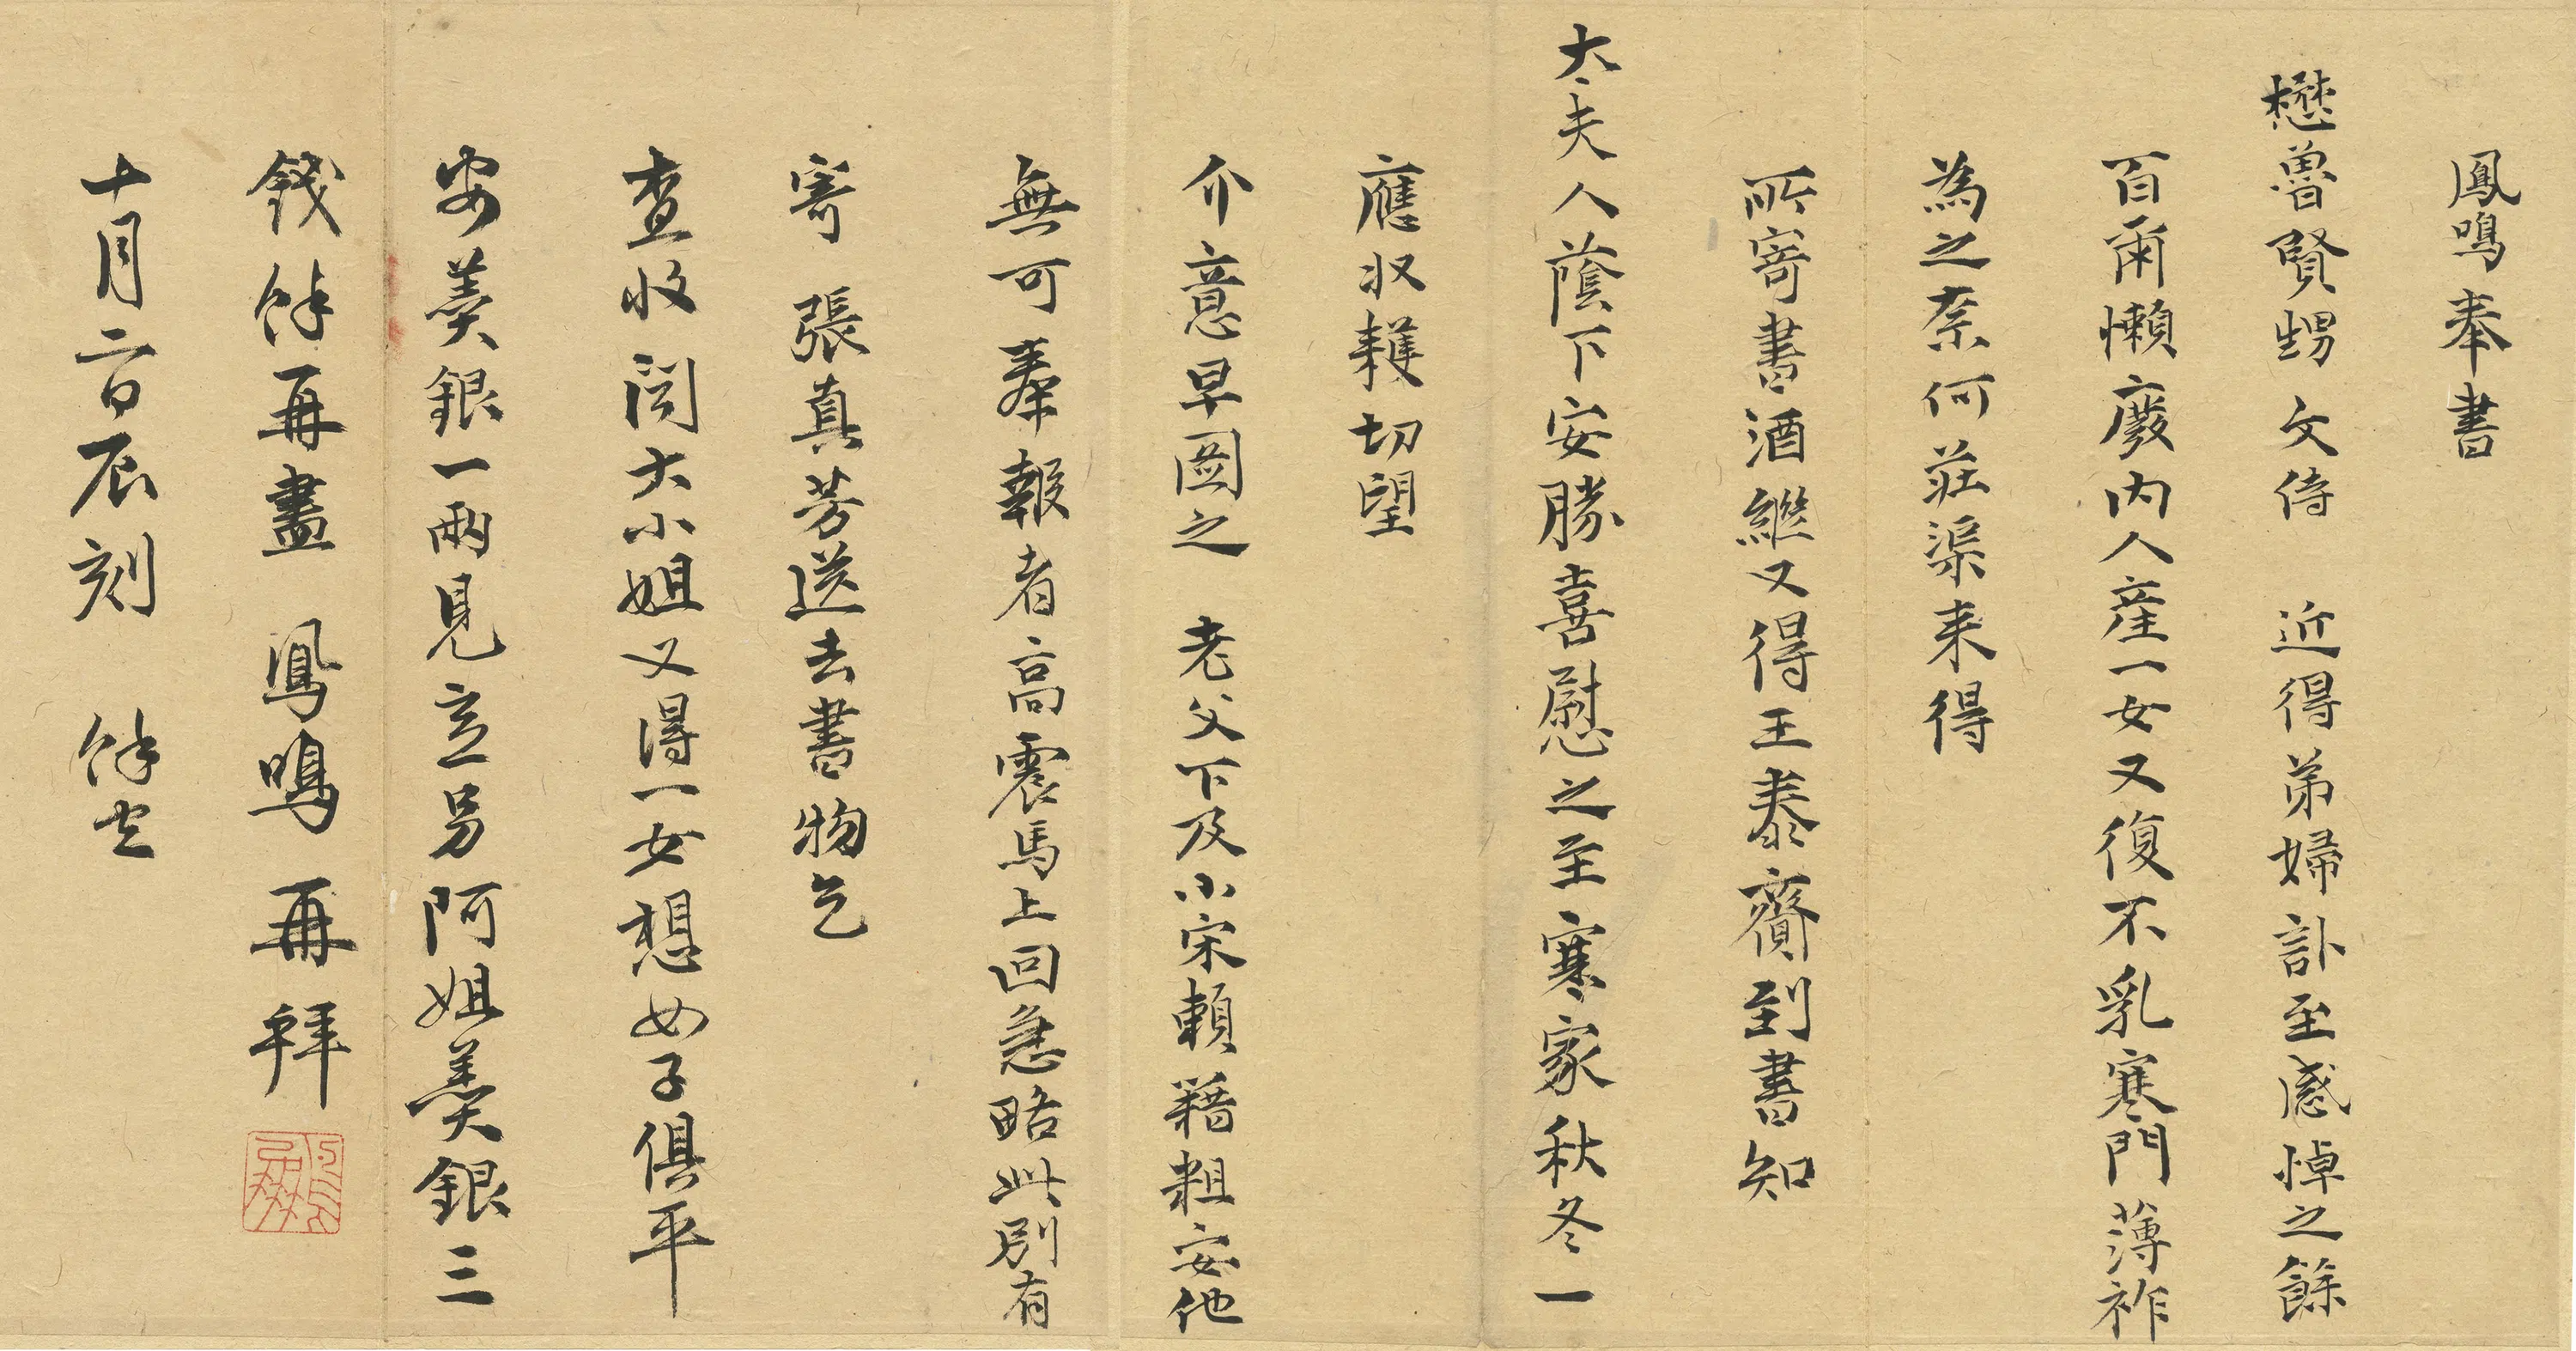 鳳鳴奉書
懋魯賢甥文侍 近得弟婦訃至感悼之餘
百爾懶廢內人產一女又復不乳寒門薄祚
為之柰何莊渠來得
所寄書酒繼又得王泰齎到書知
太夫人蔭下安勝喜慰之至寒家秋冬一
應收穫切望
介意早圖之 老父下及小宋賴藉粗安他
無可奉報者高震馬上回急略此別有
寄張真芳送去書物乞
查收問大小姐又得一女想母子俱平
安羹銀一兩見立另阿姐羹銀三
錢餘再盡 鳳鳴再拜
十月二日辰刻